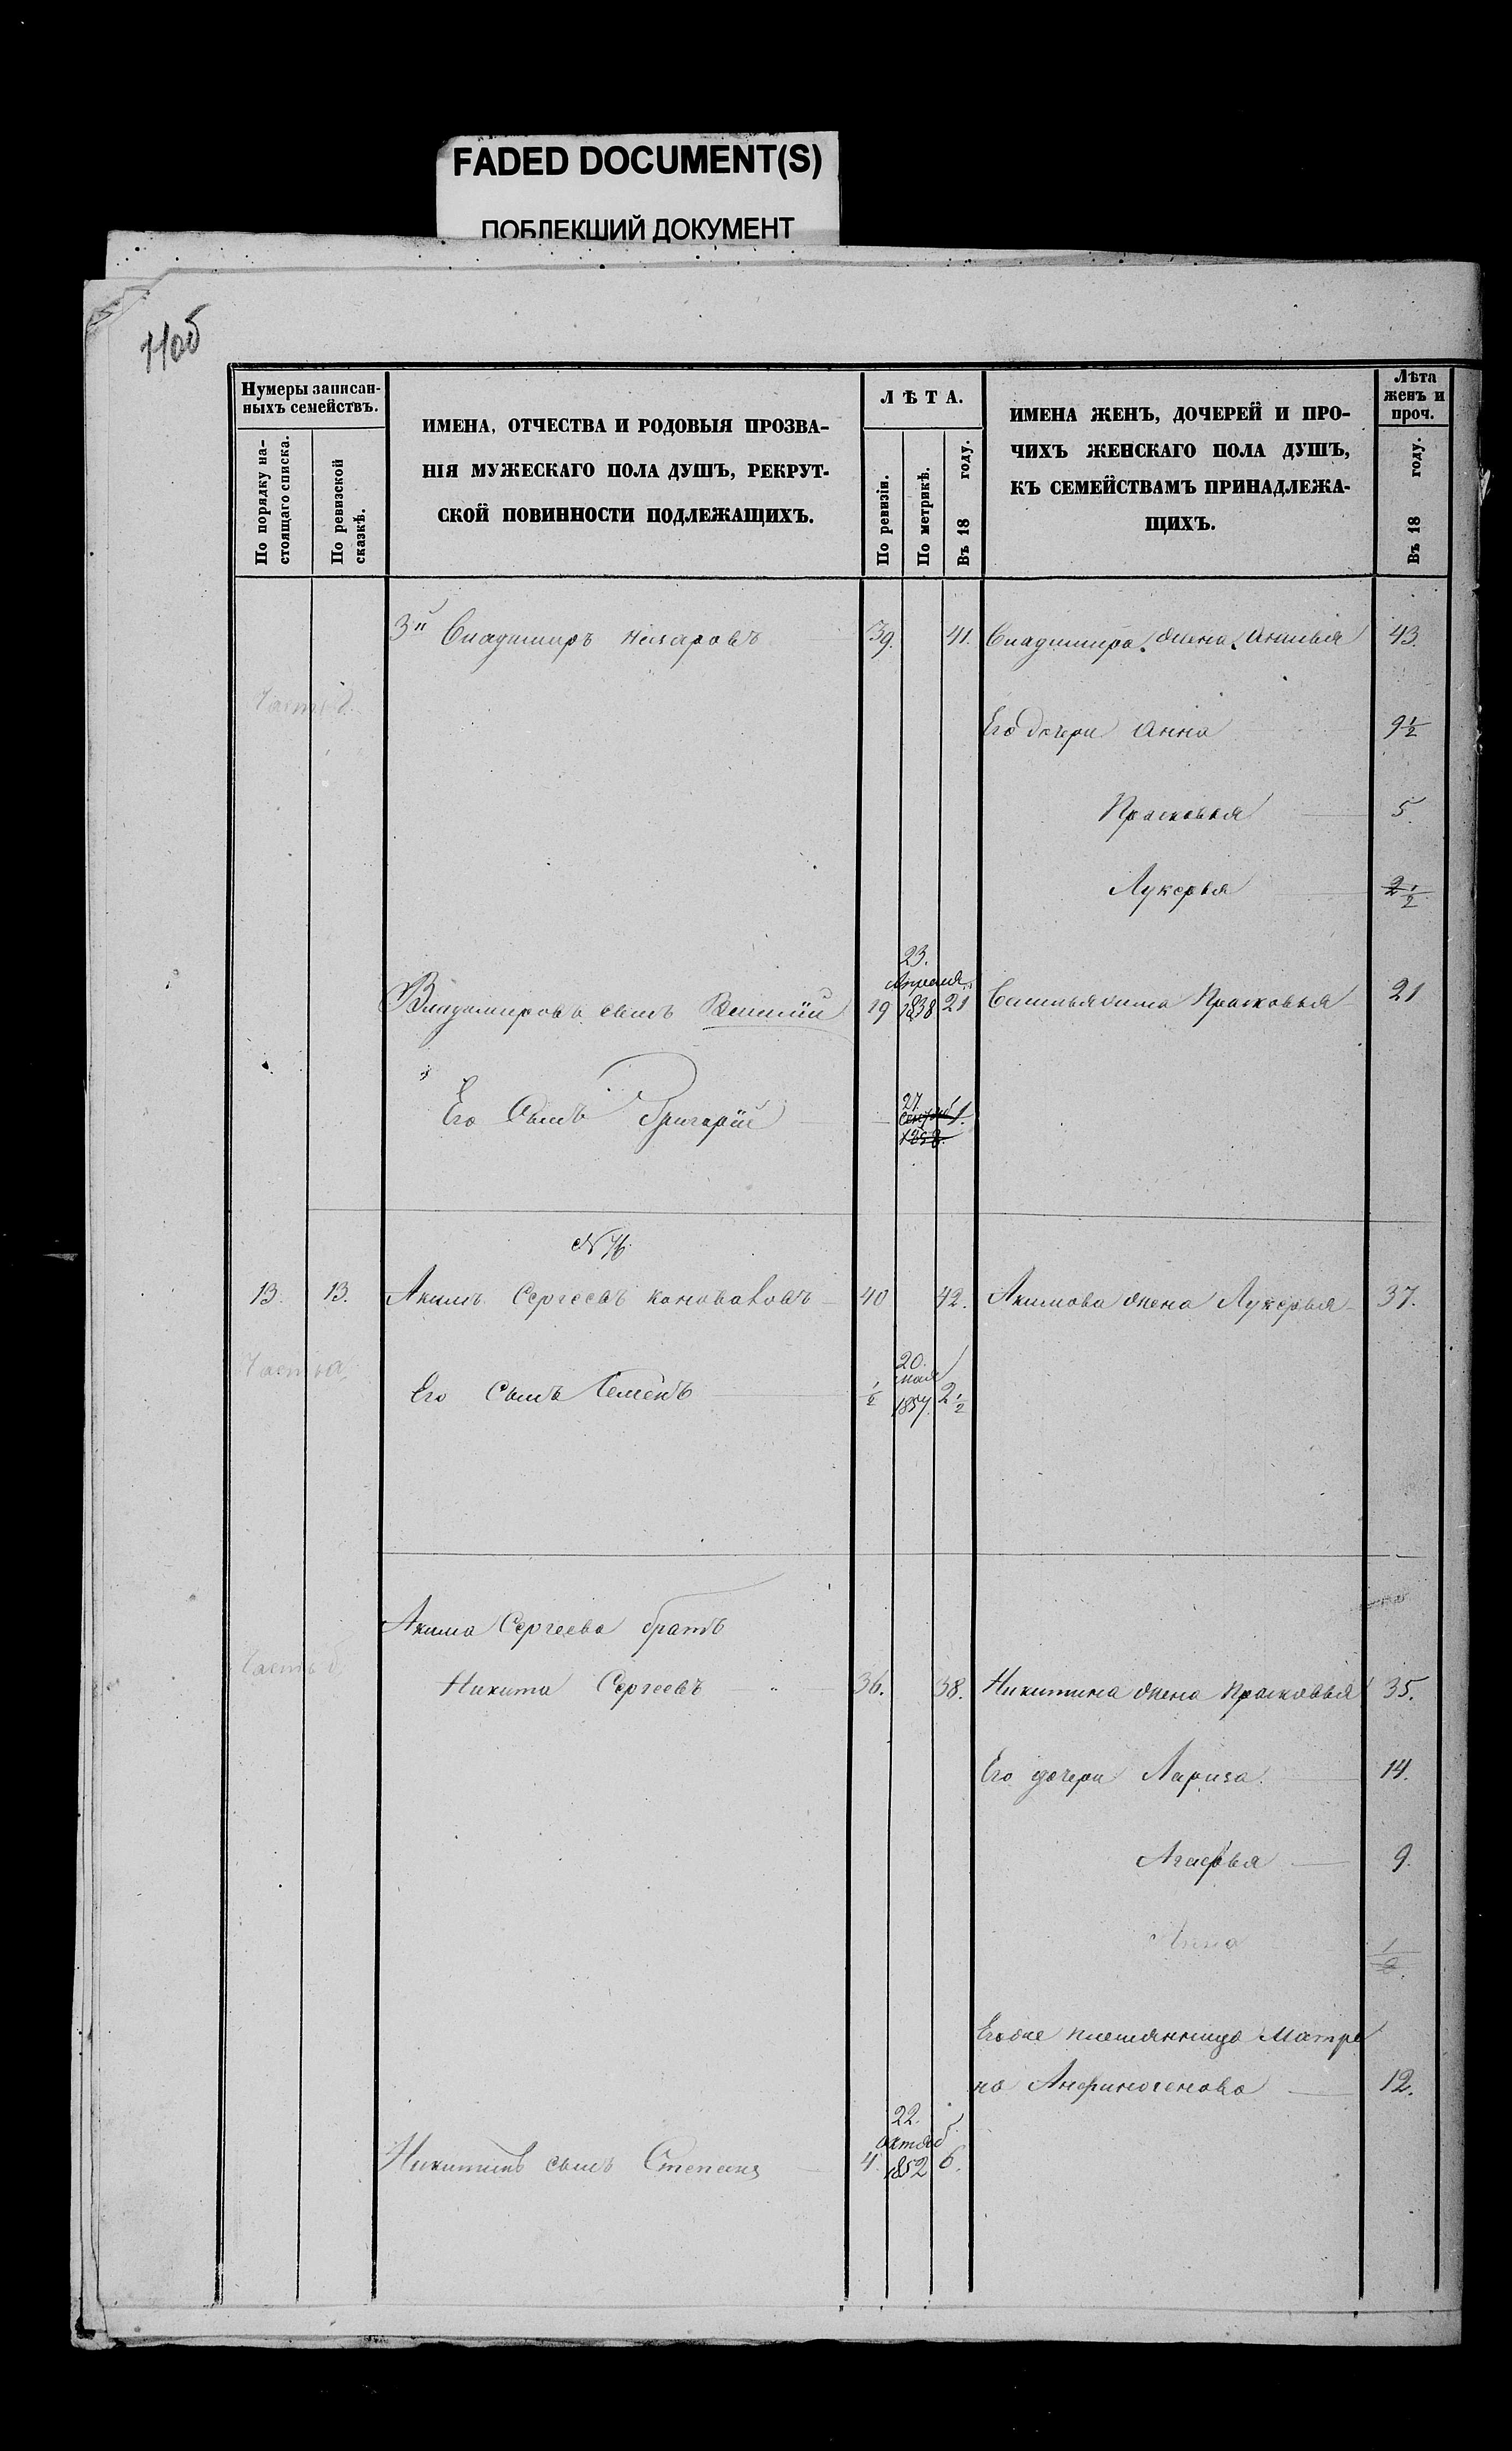 FADED DOCUMENT(S)
ПОБЛЕКШИЙ ДОКУМЕНТ
11об
Нумеры записан-
ныхъ семействъ.
По порядку на-
стоящаго списка.
По ревизской
сказкѣ.
ИМЕНА, ОТЧЕСТВА И РОДОВЫЯ ПРОЗВА-
НІЯ МУЖЕСКАГО ПОЛА ДУШЪ, РЕКРУТ-
СКОЙ ПОВИННОСТИ ПОДЛЕЖАЩИХЪ.
ЛѢТА.
По ревизіи.
По метрикѣ.
Въ 18 году.
ИМЕНА ЖЕНЪ, ДОЧЕРЕЙ И ПРО-
ЧИХЪ ЖЕНСКАГО ПОЛА ДУШЪ,
КЪ СЕМЕЙСТВАМЪ ПРИНАДЛЕЖА-
ЩИХЪ.
Лѣта
женъ и
проч.
Въ 18 году.
3й Владимиръ Назаровъ 39. 41. Владимира жена 43.
Часть б.
Его дочери Анна 9½
Прасковья 5.
Лукерья 2½
23.
Апреля
Владимировъ сынъ 19 1838 21 Прасковья 21
Его Сынъ Григорій 27 1.
1858.
13. 13. Акимъ Сергеевъ Коноваловъ 40 42. Акимова жена Лукерья 37.
20.
мая
Часть а,
Его Сынъ Семенъ ½ 1857. 2½
Акима Сергеева братъ
Часть б,
Никита Сергеевъ 36. 38. Никитина жена Прасковья 35.
Его дочери Лариса 14.
Агафья 9.
Анна ½.
Его же племянница Матре
на Анфиногенова 12.
22.
октяб
Никитинъ сынъ Степанъ 4. 1852 6.